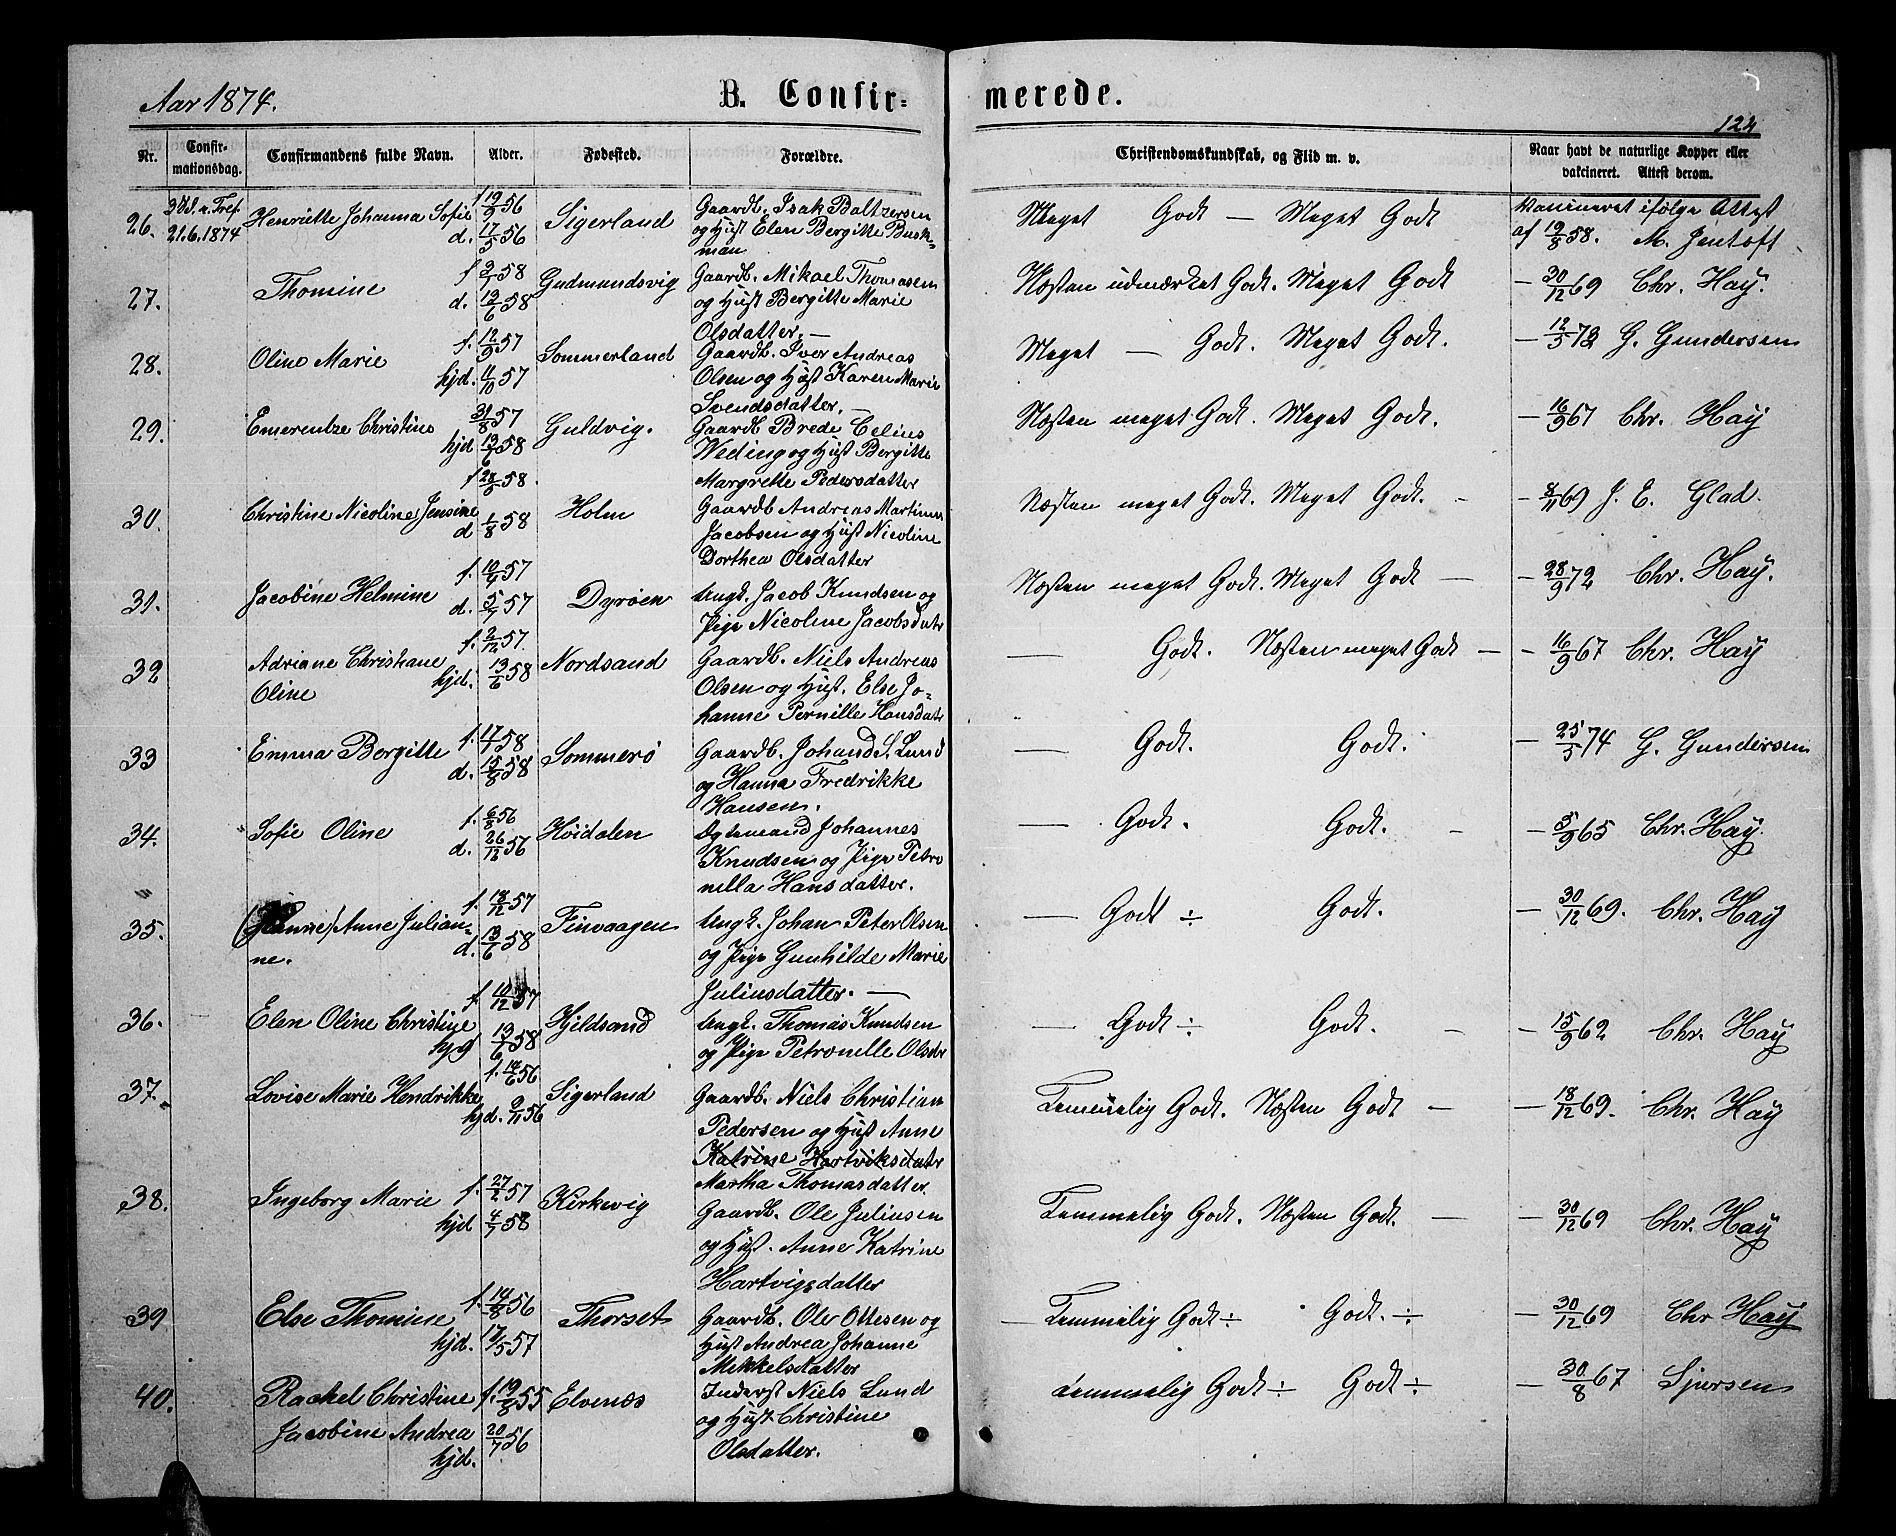 Aar 1874.
B. Confir-
merede.
124
Nr.
Confir-
mationsdag.
Confirmandens fulde Navn.
Alder.
Fødested.
Forældre.
Christendomskundskab, og Flid m. v.
Naar havt de naturlige Kopper eller
vakcineret. Attest derom.
26. 3 S. e. Tref. 21.6.1874 Henriette Johanna Sofie f 19/2 56 d. 17/5 56 Sigerland
Gaardb. Isak Baltzersen
og Hust Elen Bergitte Busk-
man
Meget Godt — Meget Godt
Vaccineret ifølge Attest
af 19/8 58. M. Jentoft
27. Thomine d. 13/6 58 Gudmundsvig
Gaardb. Mikael Thomasen
og Hust Bergitte Marie
Olsdatter. —
Næsten udmærket Godt. Meget Godt
— 30/12 69 Chr. Hay.
28. Oline Marie f. 12/9 57 hjd. 11/10 57 Sommerland
Gaardb. Iver Andreas
Olsen og Hust Karen Marie
Svendsdatter. —
Meget — Godt. Meget Godt.
— 12/5 73 G. Gundersen
29. Emerentze Christine 31/8 57 hjd 13/6 58 Guldvig.
Gaardb Brede Celius
Weding og Hust Bergitte
Margrette Pedersdatter
Næsten meget Godt. Meget Godt.
— 16/9 67 Chr. Hay
30. Christine Nicoline Jensine d 1/8 58 Holm
Gaardb Andreas Martinus
Jacobsen og Hust Nicoline
Dorthea Olsdatter
Næsten meget Godt. Meget Godt. -
— 8/11 69 J. E. Glad.
31. Jacobine Helmine f. 10/4 57 d. 5/7 57 Dyrøen
Ungk. Jacob Knudsen og
Pige Nicoline Jacobsdatr
Næsten meget Godt. Meget Godt —
— 28/9 72 Chr. Hay.
32 Adriane Christiane f. 2/12 57. hjd. 13/6 58 Nordsand
Oline
Gaardb. Niels Andreas
Olsen og Hust. Else Jo-
hanne Pernille Hansdatr
— Godt. Næsten meget Godt —
— 16/9 67 Chr. Hay
33 Emma Bergitte f. 17/7 58 d. 15/8 58 Sommerø
Gaardb. Johan S. Lund
og Hanna Fredrikke
Hansen.
— Godt. Godt.
— 25/5 74 G. Gundersen
34. Sofie Oline f. 6/8 56 d. 26/12 56 Høidalen
Johannes
Knudsen og Pige Petro
nella Hansdatter.
— Godt. Godt. -
— 5/9 65 Chr. Hay.
35. Anne Julian- f. 18/12 57 d. 13/6 58 Finvaagen
ne.
Ungk. Johan Peter Olsen
og Pige Gunhilde Marie
Juliusdatter. —
— Godt ÷ Godt.
— 30/12 69. Chr. Hay
36. Elen Oline Christine f 10/12 57 hjd 13/6 58 Hjeldsand
Ungk. Thomas Knudsen
og Pige Petronelle Olsdr
— Godt ÷ Godt. -
— 15/9 62 Chr. Hay
37. Lovise Marie Hendrikke f. 14/6 56 hjd. 9/11 56 Sigerland
Gaardb. Niels Christian
Pedersen og Hust Anne
Katrine Hartviksdatr
Martha Thomasdatter.
Temmelig Godt. Næsten Godt —
— 18/12 69. Chr. Hay
38. Ingeborg Marie f. 27/2 57 hjd 4/7 58 Kirkevig
Gaardb. Ole Juliusen
og Hust. Anne Katrine
Hartvigsdatter
Temmelig Godt. Næsten Godt. —
— 30/12 69 Chr. Hay
39 Else Thomine f. 14/8 56 hjd. 17/5 57 Thorset
Gaardb. Ole Ottesen og
Hust Andrea Johanne
Mikkelsdatter
Temmelig Godt ÷ Godt. ÷
— 30/12 69 Chr Hay
40. Rackel Christine f. 19/8 55 Elvenes
Jacobine Andrea 20/7 56
hjd.
Inderst Niels Lund
og Hust Christine
Olsdatter.
Temmelig Godt ÷ Godt ÷
— 30/8 67 Sjursen